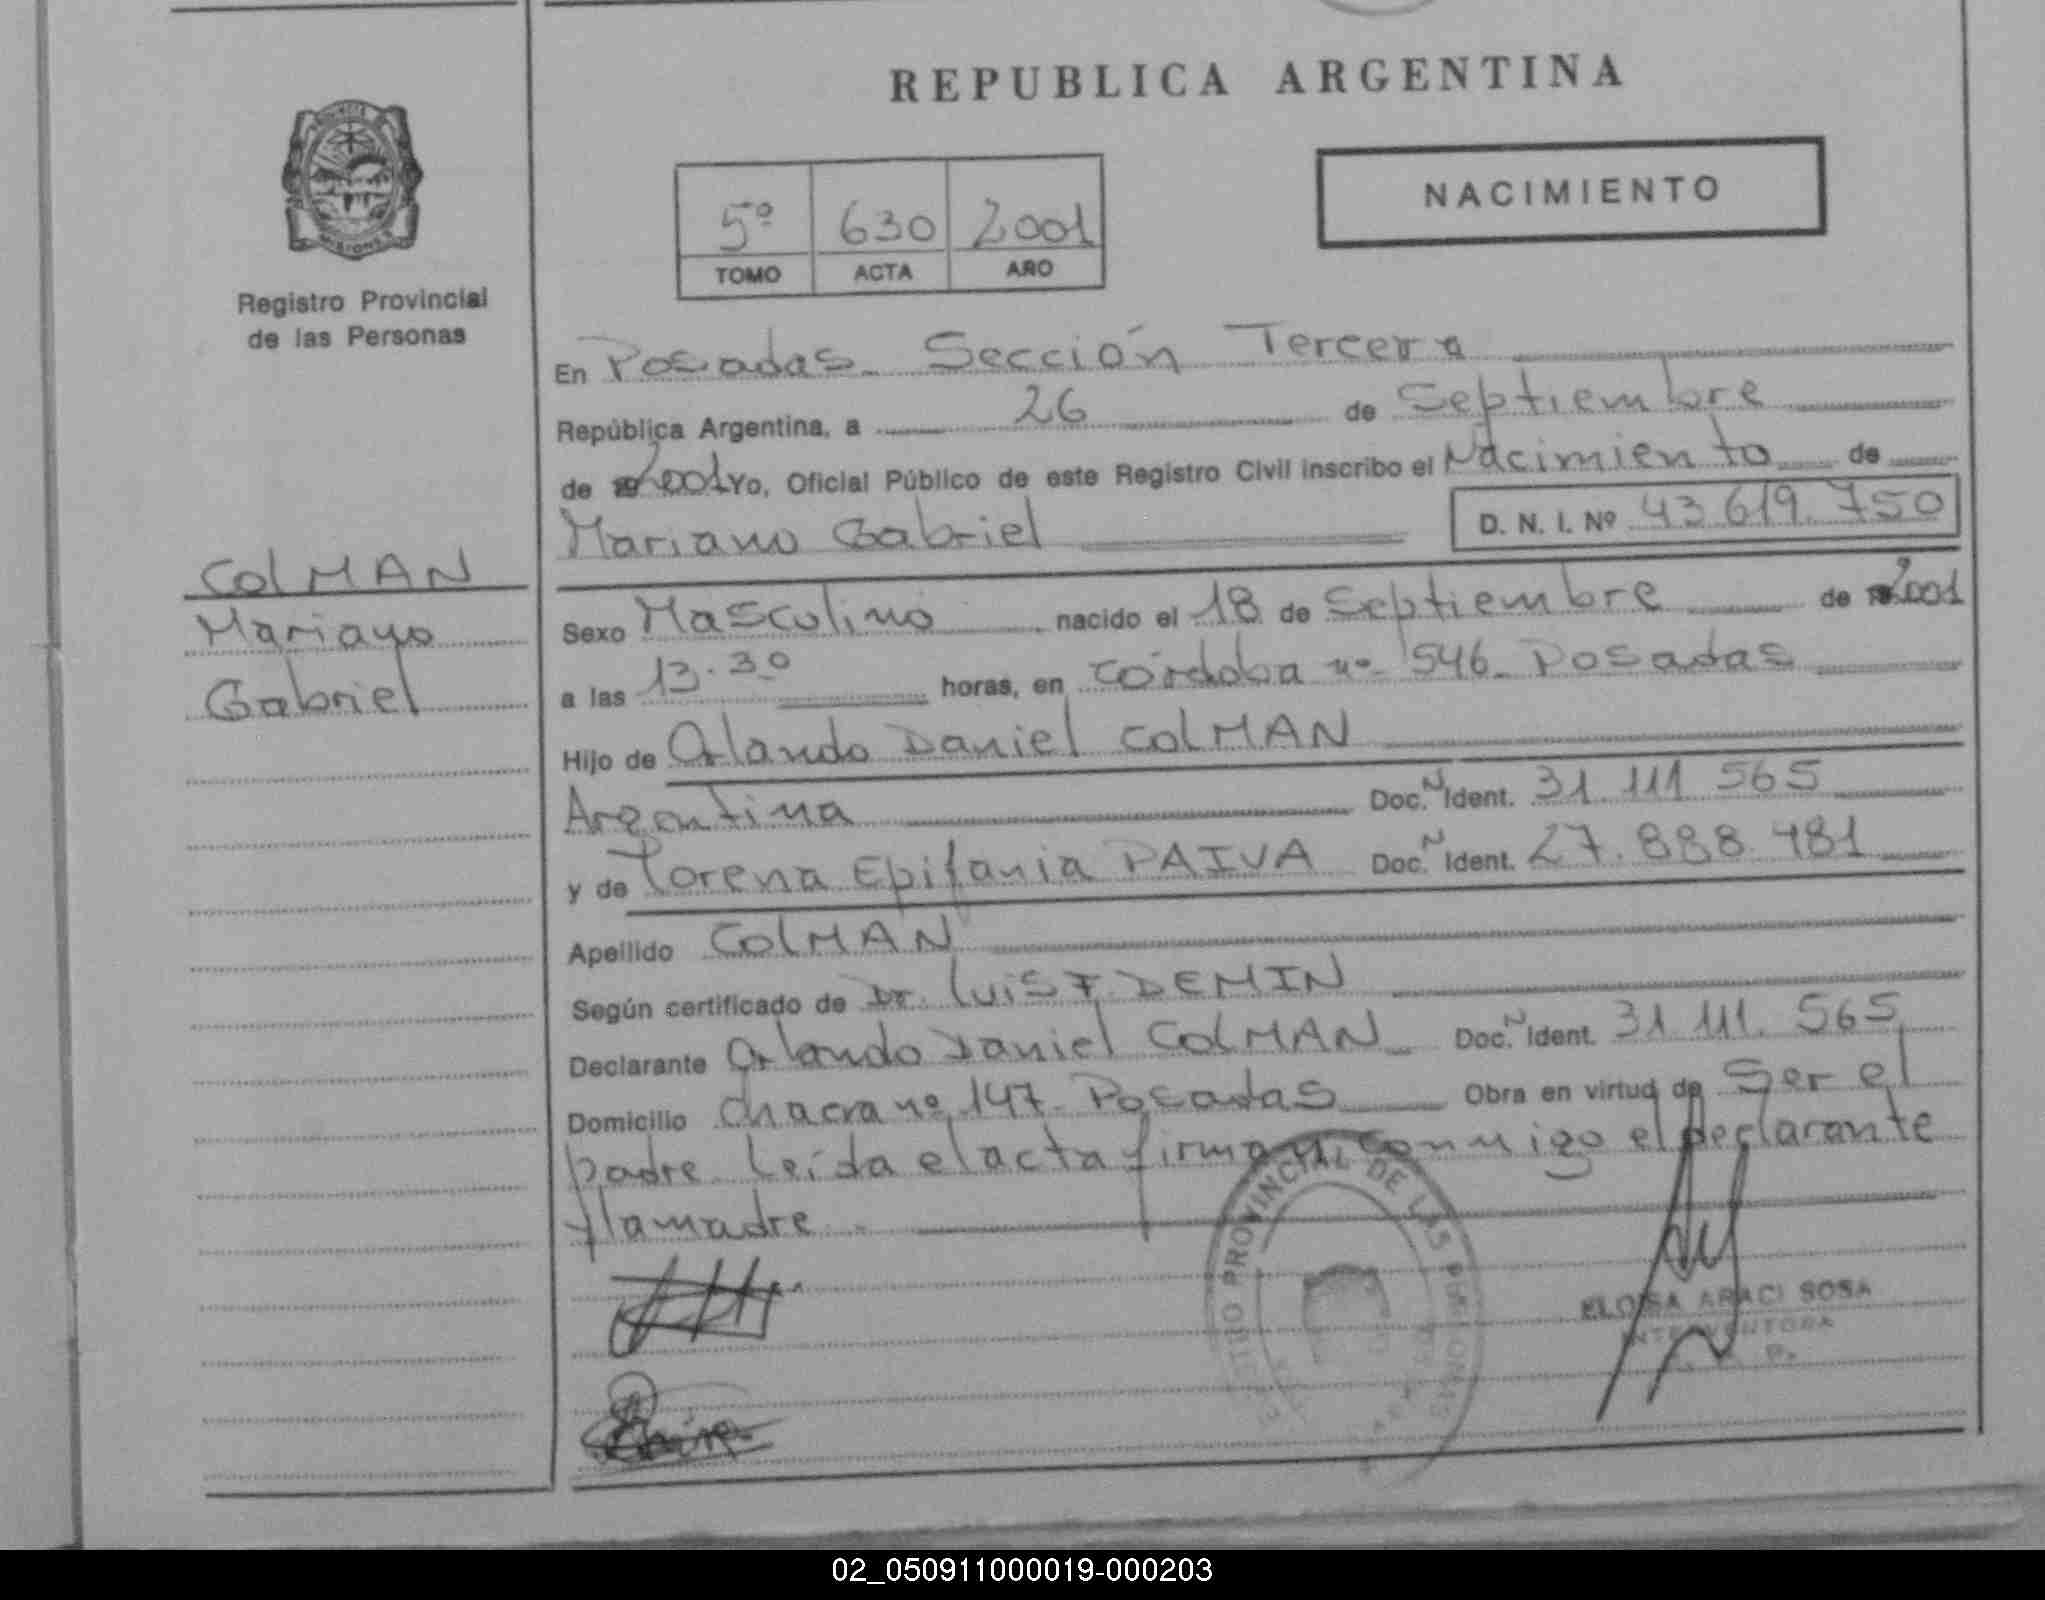 REPUBLICA ARGENTINA
NACIMIENTO
5º 630 2001
TOMO ACTA AÑO
MISIONES
Registro Provincial
de las Personas
COLMAN
Mariano
Gabriel
En Posadas Sección Tercera
República Argentina, a 26 de Septiembre
de 2001 Yo, Oficial Público de este Registro Civil inscribo el Nacimiento de
Mariano Gabriel D. N. I. Nº 43.619.750
Sexo Masculino nacido el 18 de Septiembre de 2001
a las 13.30 horas, en Córdoba nº 546 Posadas
Hijo de Orlando Daniel COLMAN
Argentina Doc. N Ident. 31.111.565
y de Lorena Epifania PAIVA Doc. N Ident. 27.888.481
Apellido COLMAN
Según certificado de Dr. Luis F. DEMIN
Declarante Orlando Daniel COLMAN Doc. N Ident. 31.111.565
Domicilio Chacra nº 147 Posadas Obra en virtud de Ser el
padre. Leída el acta firman conmigo el declarante
y la madre.
PROVINCIAL DE LAS PERSONAS
ELOISA ARACI SOSA
INTERVENTORA
02_050911000019-000203